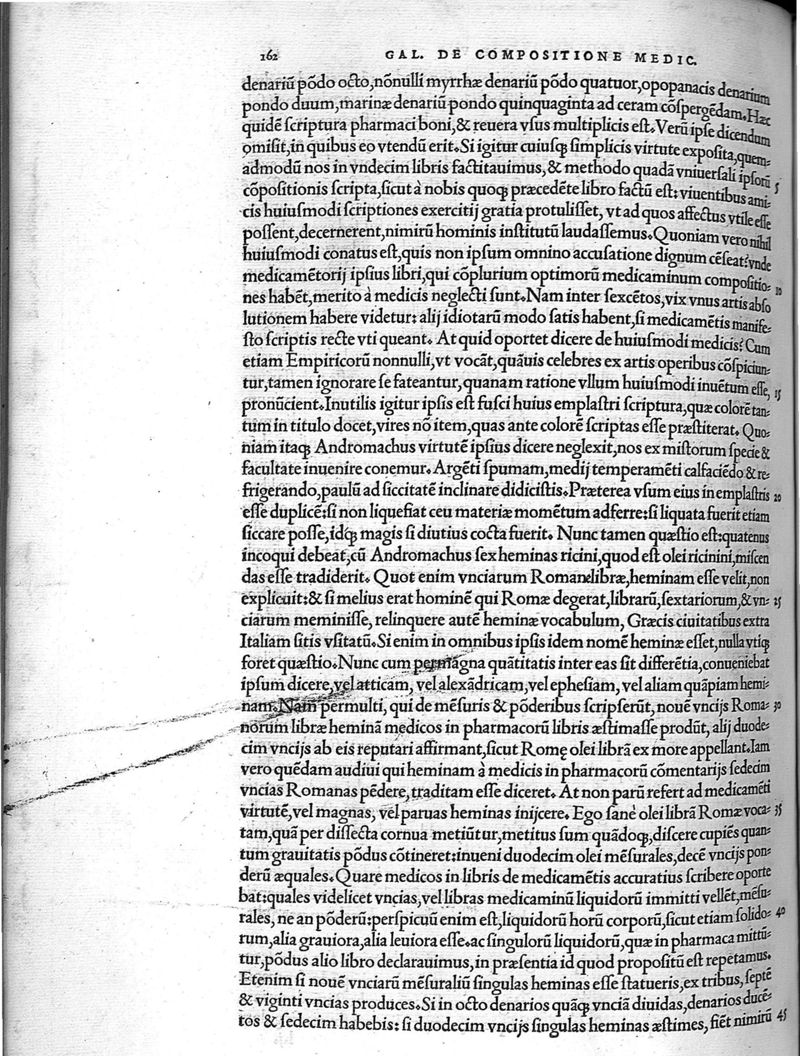 162 GAL. DE COMPOSITIONE MEDIC.
denariũ põdo octo,nõnulli myrrhæ denariũ põdo quatuor,opopanacis denarium
pondo duum,marinæ denariũ pondo quinquaginta ad ceram cõſpergẽdam.Hæc
quidẽ ſcriptura pharmaci boni,& reuera vſus multiplicis eſt.Verũ ipſe dicendum
omiſit,in quibus eo vtendũ erit.Si igitur cuiuſq; ſimplicis virtute expoſita,quem-
admodũ nos in vndecim libris factitauimus,& methodo quadã vniuerſali ipſorũ 5
cõpoſitionis ſcripta,ſicut à nobis quoq; præcedẽte libro factũ eſt: viuentibus ami-
cis huiuſmodi ſcriptiones exercitij gratia protuliſſet, vt ad quos affectus vtile eſſe
poſſent,decernerent,nimirũ hominis inſtitutũ laudaſſemus.Quoniam vero nihil
huiuſmodi conatus eſt,quis non ipſum omnino accuſatione dignum cẽſeat?vnde
medicamẽtorij ipſius libri,qui cõplurium optimorũ medicaminum compoſitio- 10
nes habẽt,merito à medicis neglecti ſunt.Nam inter ſexcẽtos,vix vnus artis abſo
lutionem habere videtur: alij idiotarũ modo ſatis habent,ſi medicamẽtis manife-
ſto ſcriptis recte vti queant. At quid oportet dicere de huiuſmodi medicis? Cum
etiam Empiricorũ nonnulli,vt vocãt,quãuis celebres ex artis operibus cõſpiciun-
tur,tamen ignorare ſe fateantur,quanam ratione vllum huiuſmodi inuẽtum eſſe, 15
pronũcient.Inutilis igitur ipſis eſt fuſci huius emplaſtri ſcriptura,quæ colorẽ tan-
tum in titulo docet,vires nõ item,quas ante colorẽ ſcriptas eſſe præſtiterat. Quo-
niam itaq; Andromachus virtutẽ ipſius dicere neglexit,nos ex miſtorum ſpecie &
facultate inuenire conemur. Argẽti ſpumam,medij temperamẽti calfaciẽdo & re-
frigerando,paulũ ad ſiccitatẽ inclinare didiciſtis.Præterea vſum eius in emplaſtris 20
eſſe duplicẽ:ſi non liquefiat ceu materiæ momẽtum adferre:ſi liquata fuerit etiam
ſiccare poſſe,idq; magis ſi diutius cocta fuerit. Nunc tamen quæſtio eſt:quatenus
incoqui debeat,cũ Andromachus ſex heminas ricini,quod eſt olei ricinini,miſcen
das eſſe tradiderit. Quot enim vnciarum Romanælibræ,heminam eſſe velit,non
explicuit:& ſi melius erat hominẽ qui Romæ degerat,librarũ,ſextariorum,& vn- 25
ciarum meminiſſe, relinquere autẽ heminæ vocabulum, Græcis ciuitatibus extra
Italiam ſitis vſitatũ.Si enim in omnibus ipſis idem nomẽ heminæ eſſet,nulla vtiq;
foret quæſtio.Nunc cum permagna quãtitatis inter eas ſit differẽtia,conueniebat
ipſum dicere,vel atticam, vel alexãdricam,vel epheſiam, vel aliam quãpiam hemi-
nam.Nam permulti, qui de mẽſuris & põderibus ſcripſerũt, nouẽ vncijs Roma- 30
norum libræ heminã medicos in pharmacorũ libris æſtimaſſe produ̅t, alij duode-
cim vncijs ab eis reputari affirmant,ſicut Romę olei librã ex more appellant.Iam
vero quẽdam audiui qui heminam à medicis in pharmacorũ cõmentarijs ſedecim
vncias Romanas pẽdere, traditam eſſe diceret. At non parũ refert ad medicamẽti
virtutẽ,vel magnas, vel paruas heminas inijcere. Ego ſanè olei librã Romæ voca- 35
tam,quã per diſſecta cornua metiũtur,metitus ſum quãdoq;,diſcere cupiẽs quan-
tum grauitatis põdus cõtineret:inueni duodecim olei mẽſurales,decẽ vncijs pon-
derũ æquales.Quare medicos in libris de medicamẽtis accuratius ſcribere oporte
bat:quales videlicet vncias,vel libras medicaminũ liquidorũ immitti vellẽt,mẽſu-
rales, ne an põderũ:perſpicuũ enim eſt,liquidorũ horũ corporũ,ſicut etiam ſolido- 40
rum,alia grauiora,alia leuiora eſſe.ac ſingulorũ liquidorũ, quæ in pharmaca mittũ-
tur,põdus alio libro declarauimus,in præſentia id quod propoſitũ eſt repetamus.
Etenim ſi nouẽ vnciarũ mẽſuraliũ ſingulas heminas eſſe ſtatueris,ex tribus, ſeptẽ
& viginti vncias produces.Si in octo denarios quãq; vnciã diuidas,denarios ducẽ-
tos & ſedecim habebis: ſi duodecim vncijs ſingulas heminas æſtimes, fiẽt nimirũ 45